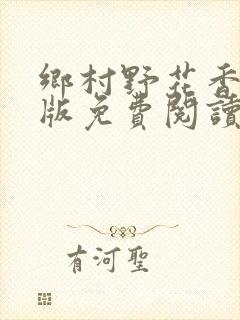 鄉村野花香
版免費閱讀
有河聖